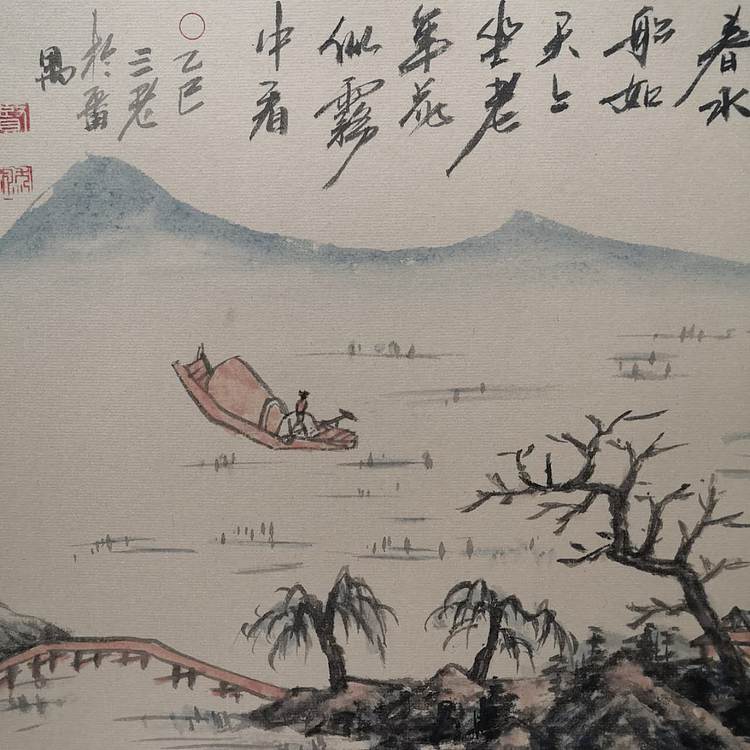 春水
船如
天上
坐老
年花
似霧
中看
乙巳
三老
於番
禺